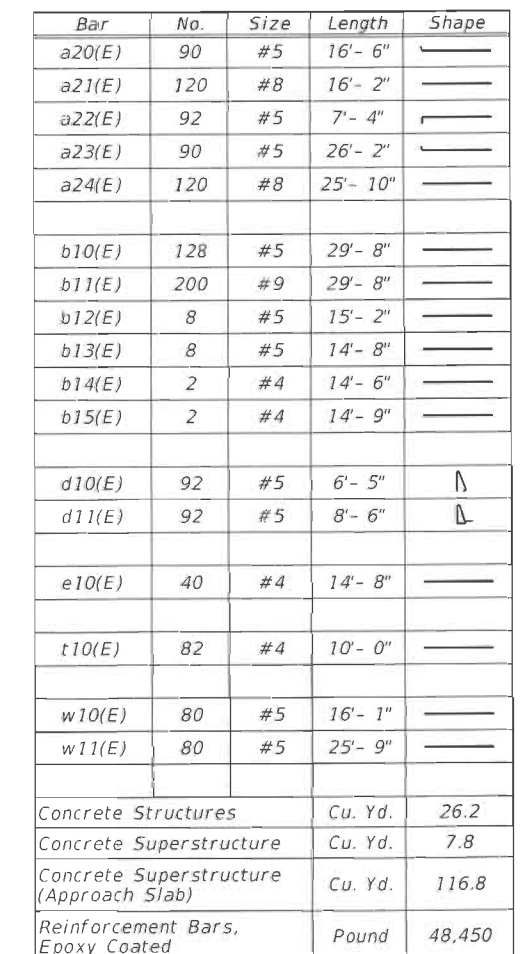 Bar No. Size Length Shape
a20(E) 90 #5 16'- 6"
a21(E) 120 #8 16'- 2"
a22(E) 92 #5 7'- 4"
a23(E) 90 #5 26'- 2"
a24(E) 120 #8 25'- 10"
b10(E) 128 #5 29'- 8"
b11(E) 200 #9 29'- 8"
b12(E) 8 #5 15'- 2"
b13(E) 8 #5 14'- 8"
b14(E) 2 #4 14'- 6"
b15(E) 2 #4 14'- 9"
d10(E) 92 #5 6'- 5"
d11(E) 92 #5 8'- 6"
e10(E) 40 #4 14'- 8"
t10(E) 82 #4 10'- 0"
w10(E) 80 #5 16'- 1"
w11(E) 80 #5 25'- 9"
Concrete Structures Cu. Yd. 26.2
Concrete Superstructure Cu. Yd. 7.8
Concrete Superstructure
(Approach Slab) Cu. Yd. 116.8
Reinforcement Bars,
Epoxy Coated Pound 48,450